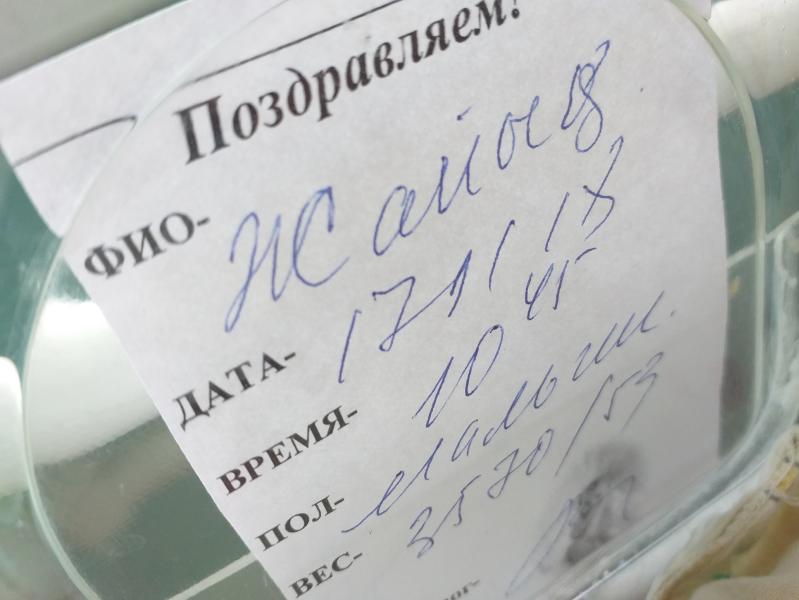 Поздравляем!
ФИО-
ДАТА- 17 11 18
ВРЕМЯ- 10 45
ПОЛ- мальчик.
ВЕС- 3570/53